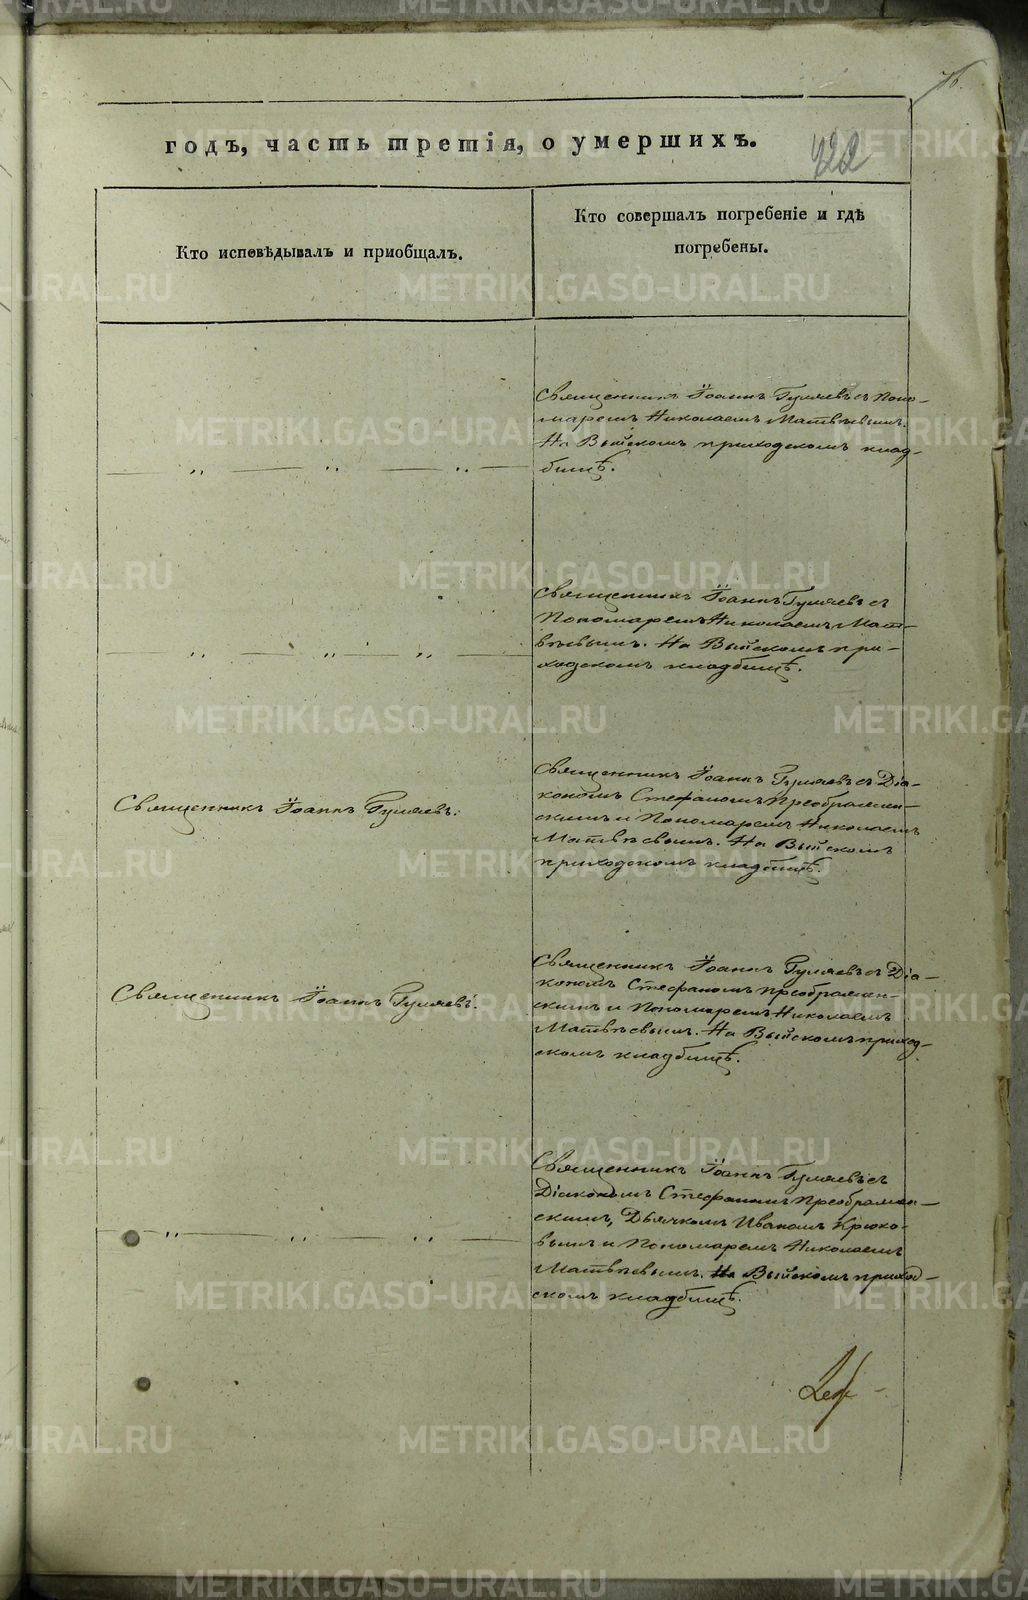 годъ, часть третія, о умершихъ.
422
Кто исповѣдывалъ и приобщалъ.
Кто совершалъ погребеніе и гдѣ
погребены.
Священникъ Іоаннъ Гуляевъ съ Поно-
маремъ Николаемъ Матвѣевымъ.
На Выйскомъ приходскомъ клад-
бищѣ.
Священникъ Іоаннъ Гуляевъ съ
Пономаремъ Николаемъ Мат-
вѣевымъ. На Выйскомъ при-
ходскомъ кладбищѣ.
Священникъ Іоаннъ Гуляевъ.
Священникъ Іоаннъ Гуляевъ съ Діа-
кономъ Стефаномъ Преображен-
скимъ и Пономаремъ Николаемъ
Матвѣевымъ. На Выйскомъ
приходскомъ кладбищѣ.
Священникъ Іоаннъ Гуляевъ.
Священникъ Іоаннъ Гуляевъ съ Діа-
кономъ Стефаномъ Преображен-
скимъ и Пономаремъ Николаемъ
Матвѣевымъ. На Выйскомъ приход-
скомъ кладбищѣ.
Священникъ Іоаннъ Гуляевъ съ
Діакономъ Стефаномъ Преображен-
скимъ, Дьячкомъ Иваномъ Крюко-
вымъ и Пономаремъ Николаемъ
Матвѣевымъ. На Выйскомъ приход-
скомъ кладбищѣ.
METRIKI.GASO-URAL.RU